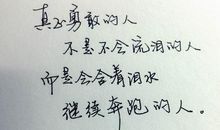 真正勇敢的人
不是不会流泪的人
而是会含着泪水
继续奔跑的人。